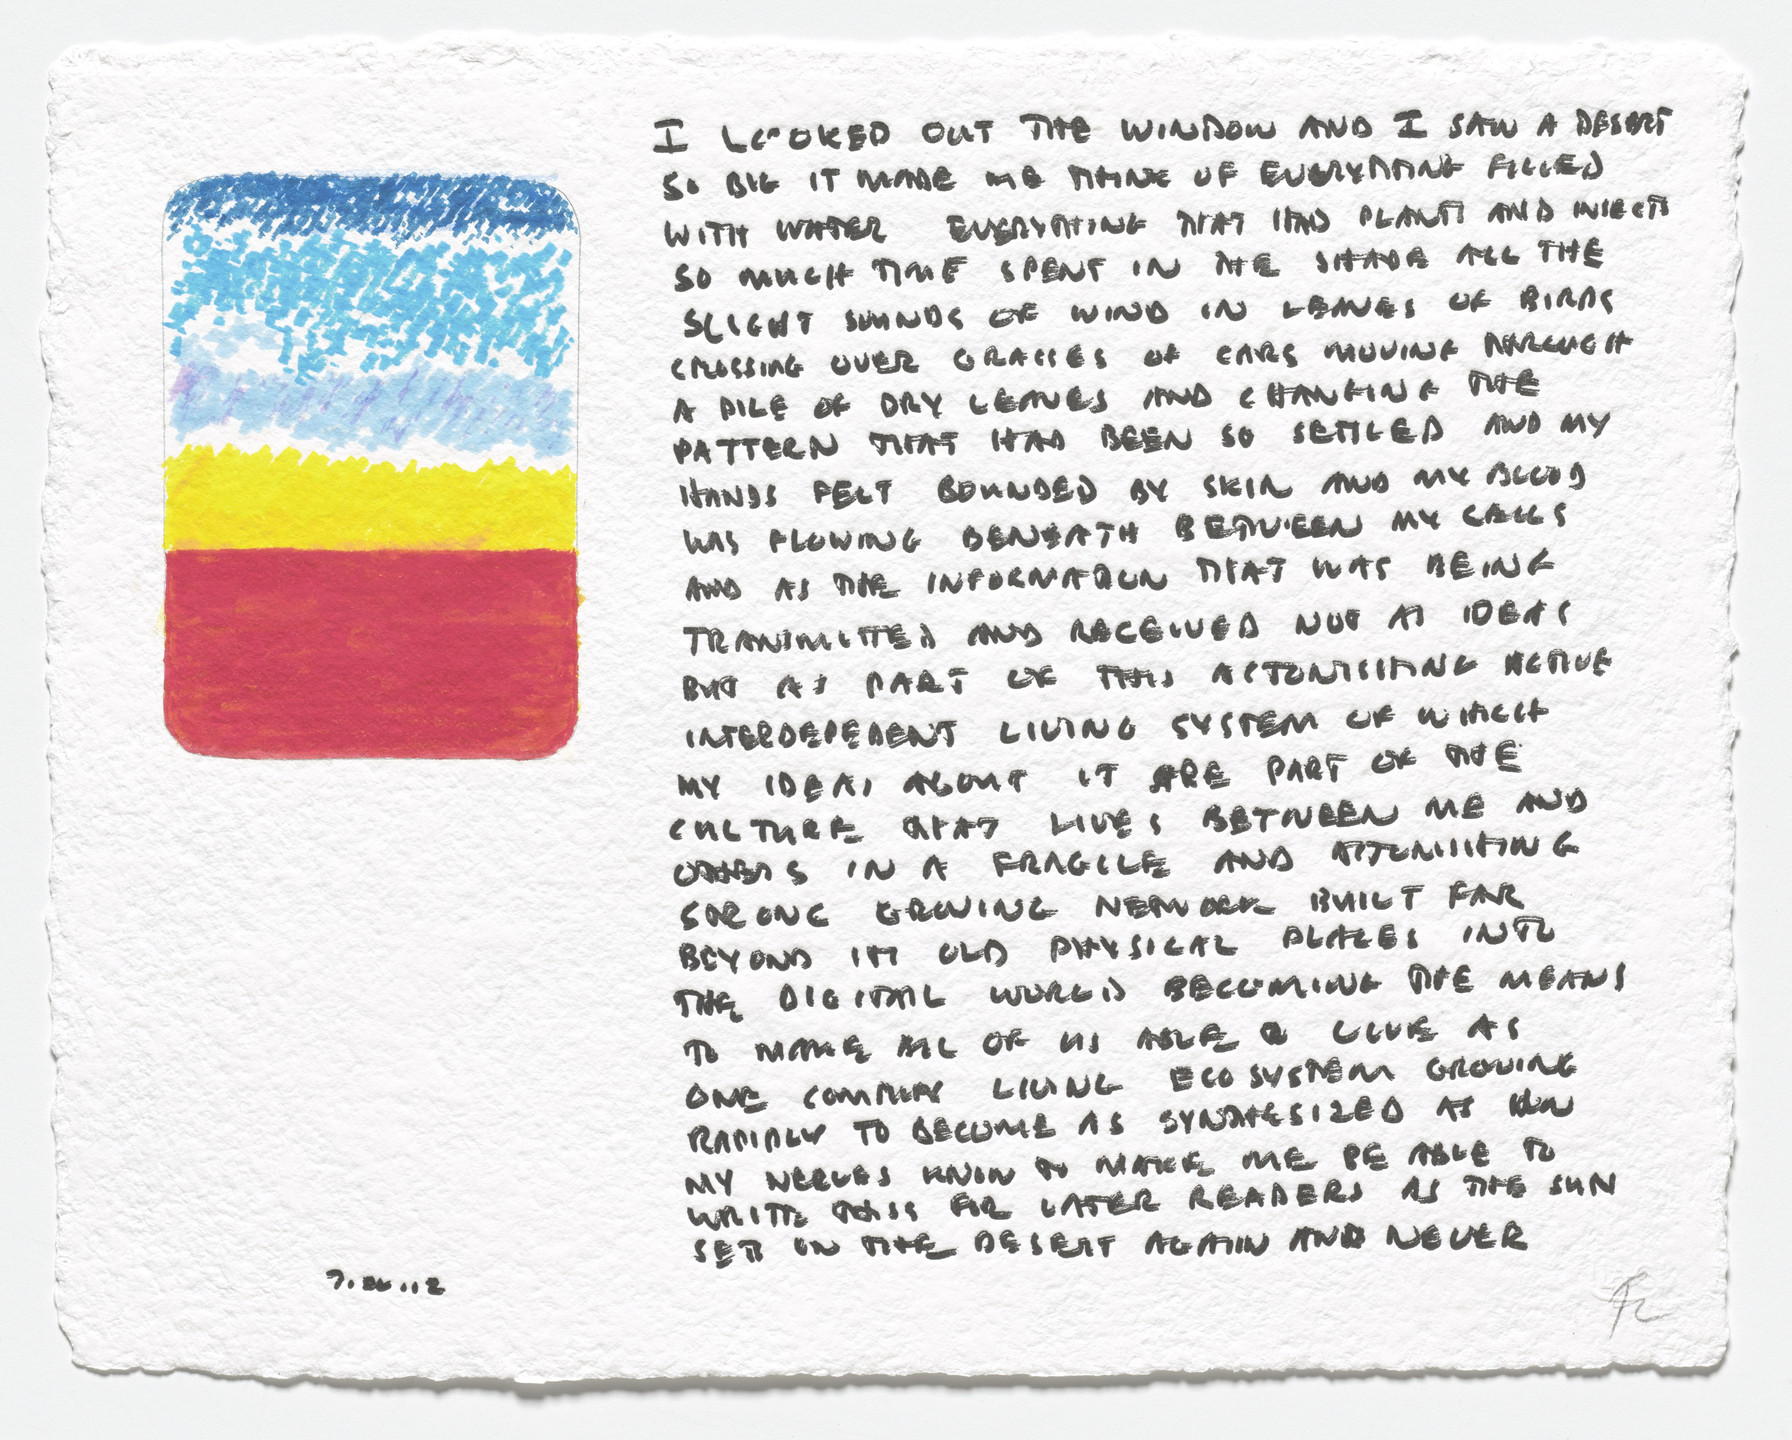 I LOOKED OUT THE WINDOW AND I SAW A DESERT
SO BIG IT MADE ME THINK OF EVERYTHING FILLED
WITH WATER EVERYTHING THAT HAD PLANTS AND INSECTS
SO MUCH TIME SPENT IN THE SHADE ALL THE
SLIGHT SOUNDS OF WIND IN LEAVES OF BIRDS
CROSSING OVER GRASSES OF CARS MOVING THROUGH
A PILE OF DRY LEAVES AND CHANGING THE
PATTERN THAT HAD BEEN SO SETTLED AND MY
HANDS FELT BOUNDED BY SKIN AND MY BLOOD
WAS FLOWING BENEATH BETWEEN MY CELLS
AND AS THE INFORMATION THAT WAS BEING
TRANSMITTED AND RECEIVED NOT AS IDEAS
BUT AS PART OF THIS ASTONISHING ACTIVE
INTERDEPEDENT LIVING SYSTEM OF WHICH
MY IDEAS ABOUT IT ARE PART OF THE
CULTURE THAT LIVES BETWEEN ME AND
OTHERS IN A FRAGILE AND ASTONISHING
STRONG GROWING NETWORK BUILT FAR
BEYOND ITS OLD PHYSICAL PLACES INTO
THE DIGITAL WORLD BECOMING THE MEANS
TO MAKE ALL OF US ABLE TO LIVE AS
ONE COMPLEX LIVING ECOSYSTEM GROWING
RAPIDLY TO BECOME AS SYNTHESIZED AS HOW
MY NERVES KNOW TO MAKE ME BE ABLE TO
WRITE THIS FOR LATER READERS AS THE SUN
SETS ON THE DESERT AGAIN AND NEVER